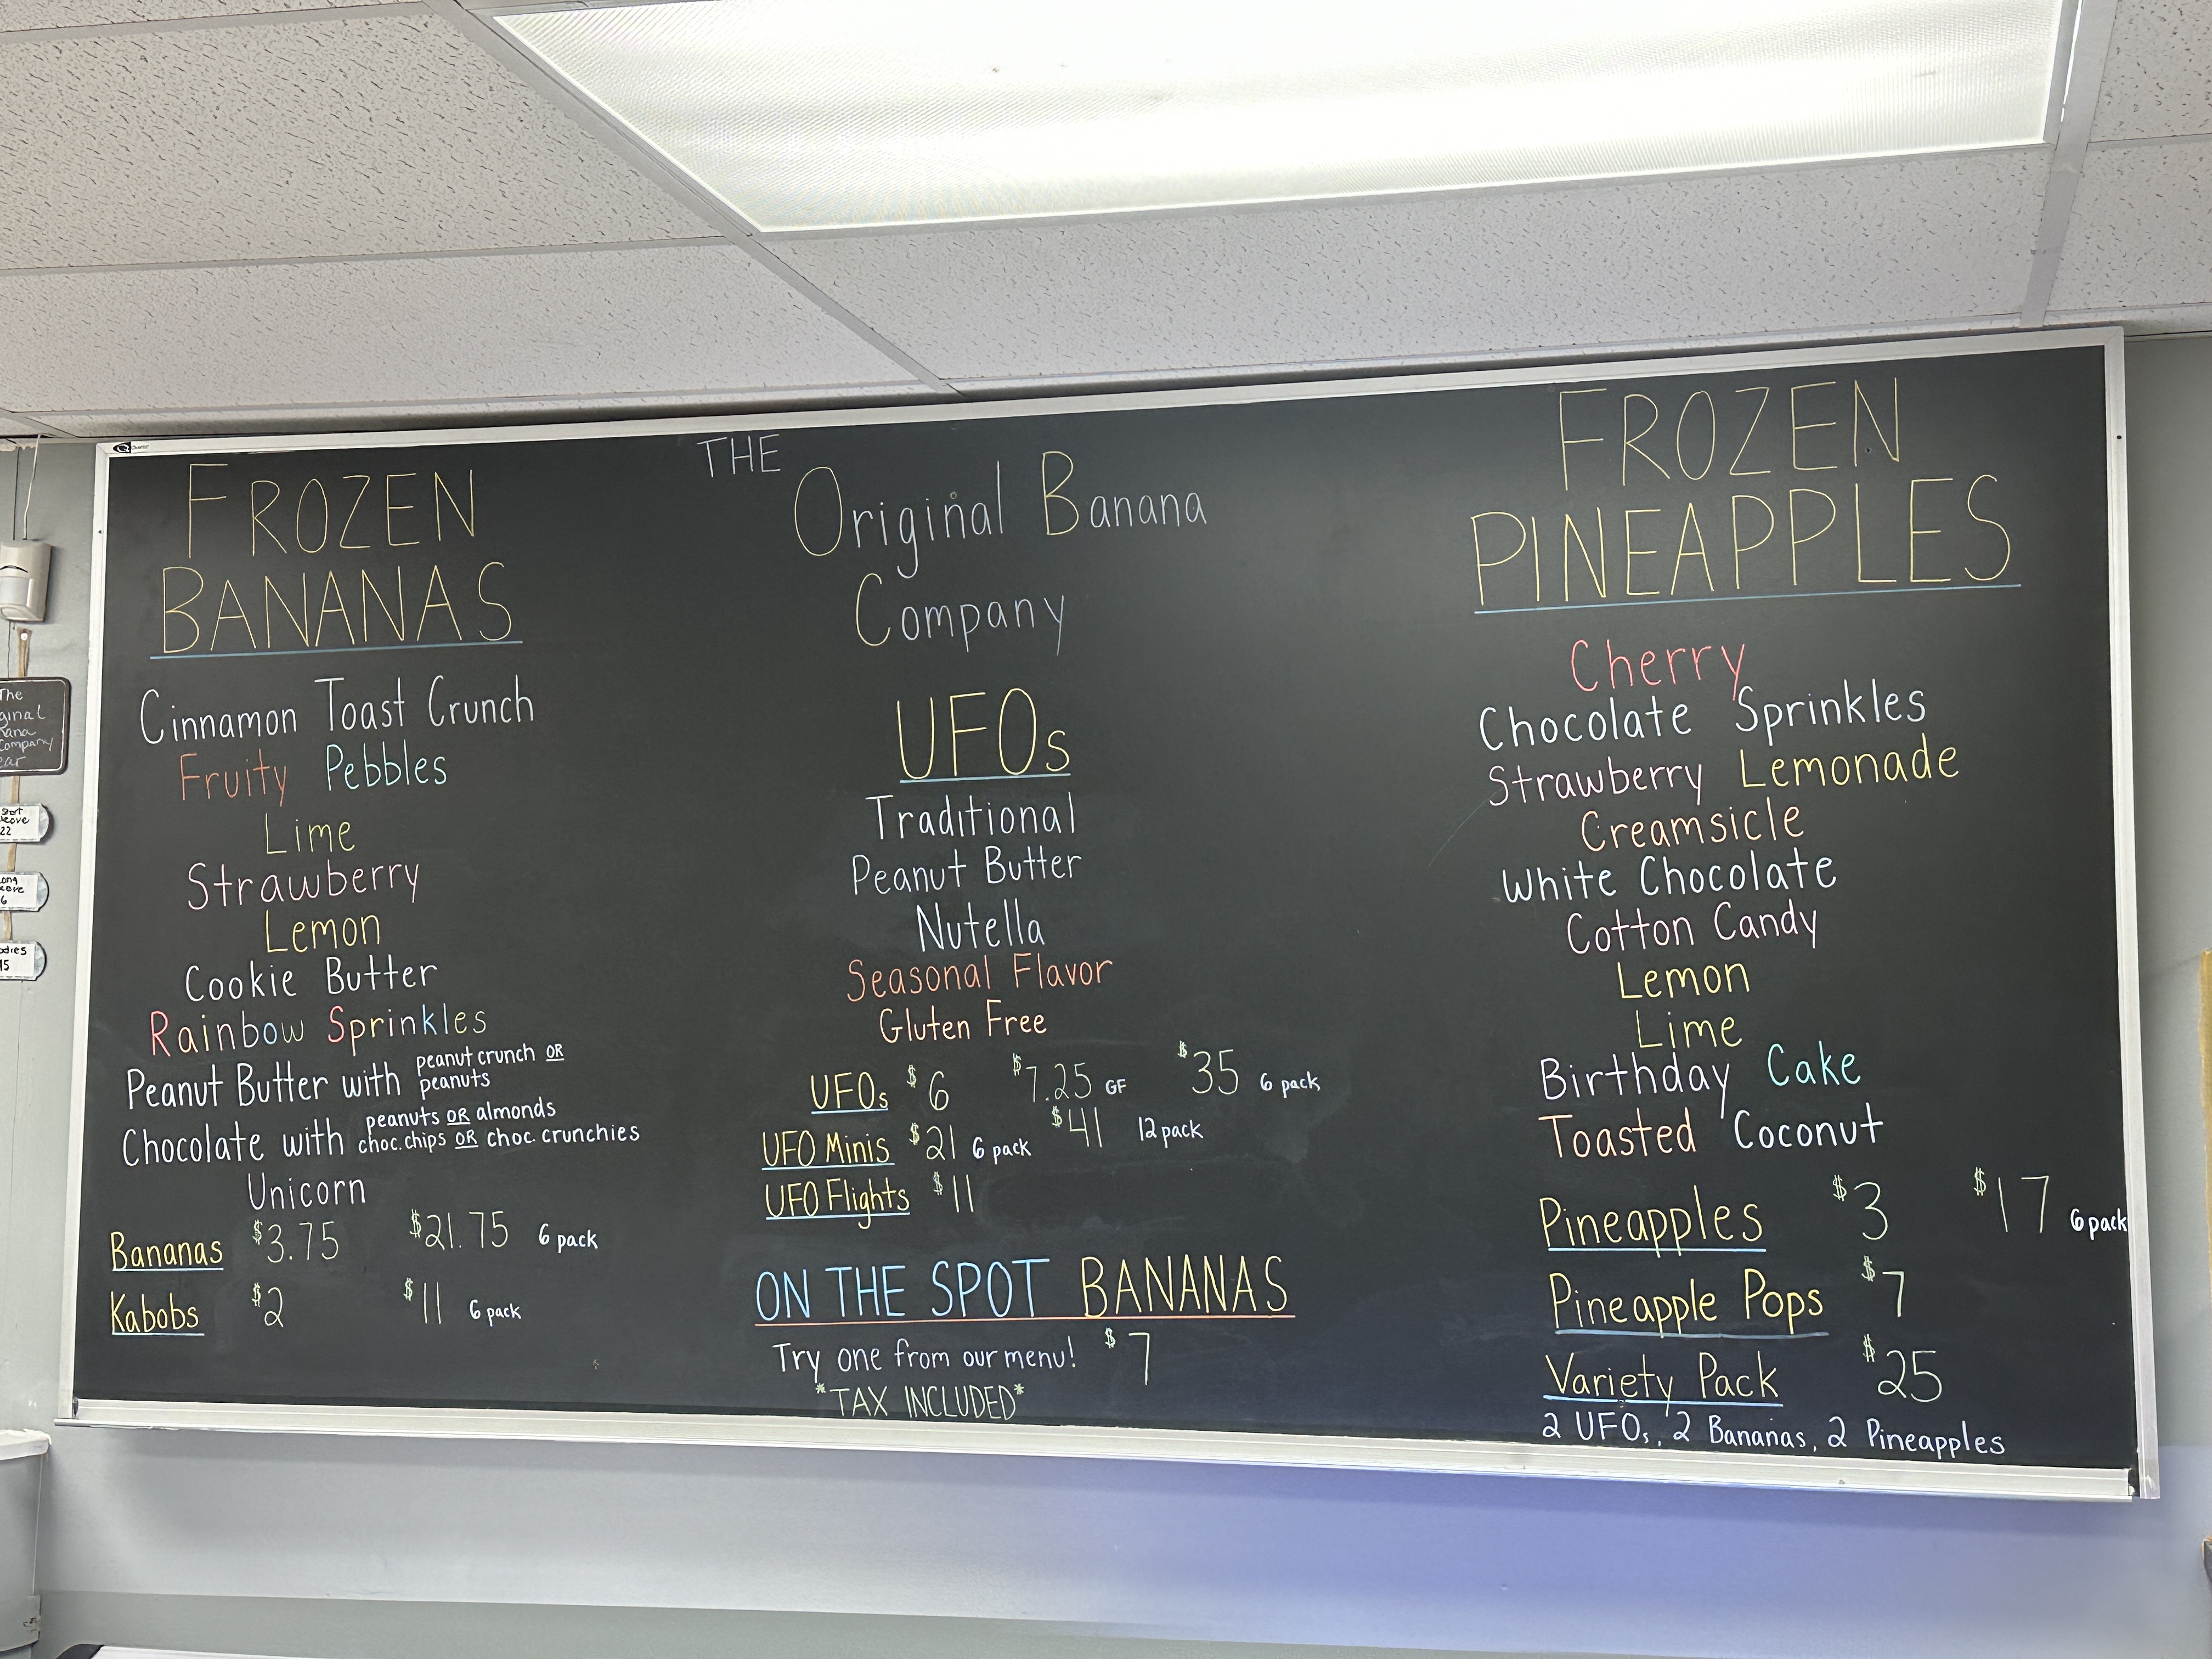 THE
Original Banana
Company
FROZEN
BANANAS
Cinnamon Toast Crunch
Fruity Pebbles
Lime
Strawberry
Lemon
Cookie Butter
Rainbow Sprinkles
Peanut Butter with peanut crunch OR
peanuts
Chocolate with peanuts OR almonds
choc. chips OR choc. crunchies
Unicorn
Bananas $3.75 $21.75 6 pack
Kabobs $2 $11 6 pack
UFOs
Traditional
Peanut Butter
Nutella
Seasonal Flavor
Gluten Free
UFOs $6 $7.25 GF $35 6 pack
UFO Minis $21 6 pack $41 12 pack
UFO Flights $11
ON THE SPOT BANANAS
Try one from our menu! $7
*TAX INCLUDED*
FROZEN
PINEAPPLES
Cherry
Chocolate Sprinkles
Strawberry Lemonade
Creamsicle
White Chocolate
Cotton Candy
Lemon
Lime
Birthday Cake
Toasted Coconut
Pineapples $3 $17 6 pack
Pineapple Pops $7
Variety Pack $25
2 UFOs, 2 Bananas, 2 Pineapples
The
Company